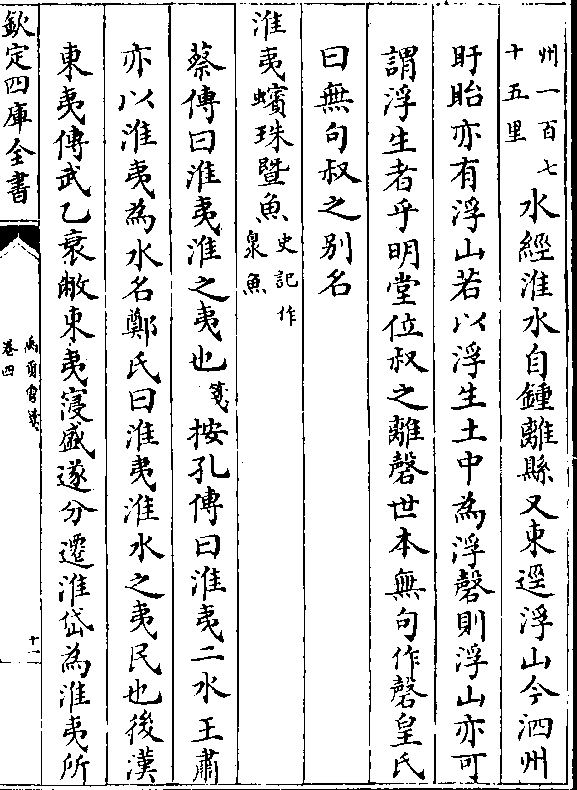 州一百七
十五里
水經淮水自鍾離縣又東逕浮山今泗州
盱眙亦有浮山若以浮生土中為浮磬則浮山亦可
謂浮生者乎明堂位叔之離磬世本無句作磬皇氏
曰無句叔之别名
淮夷蠙珠暨魚
史記作
泉魚
蔡傳曰淮夷淮之夷也
箋
按孔傳曰淮夷二水王肅
亦以淮夷為水名鄭氏曰淮夷淮水之夷民也後漢
東夷傳武乙衰敝東夷寖盛遂分遷淮岱為淮夷所
欽定四庫全書
禹貢會箋
卷四
十一